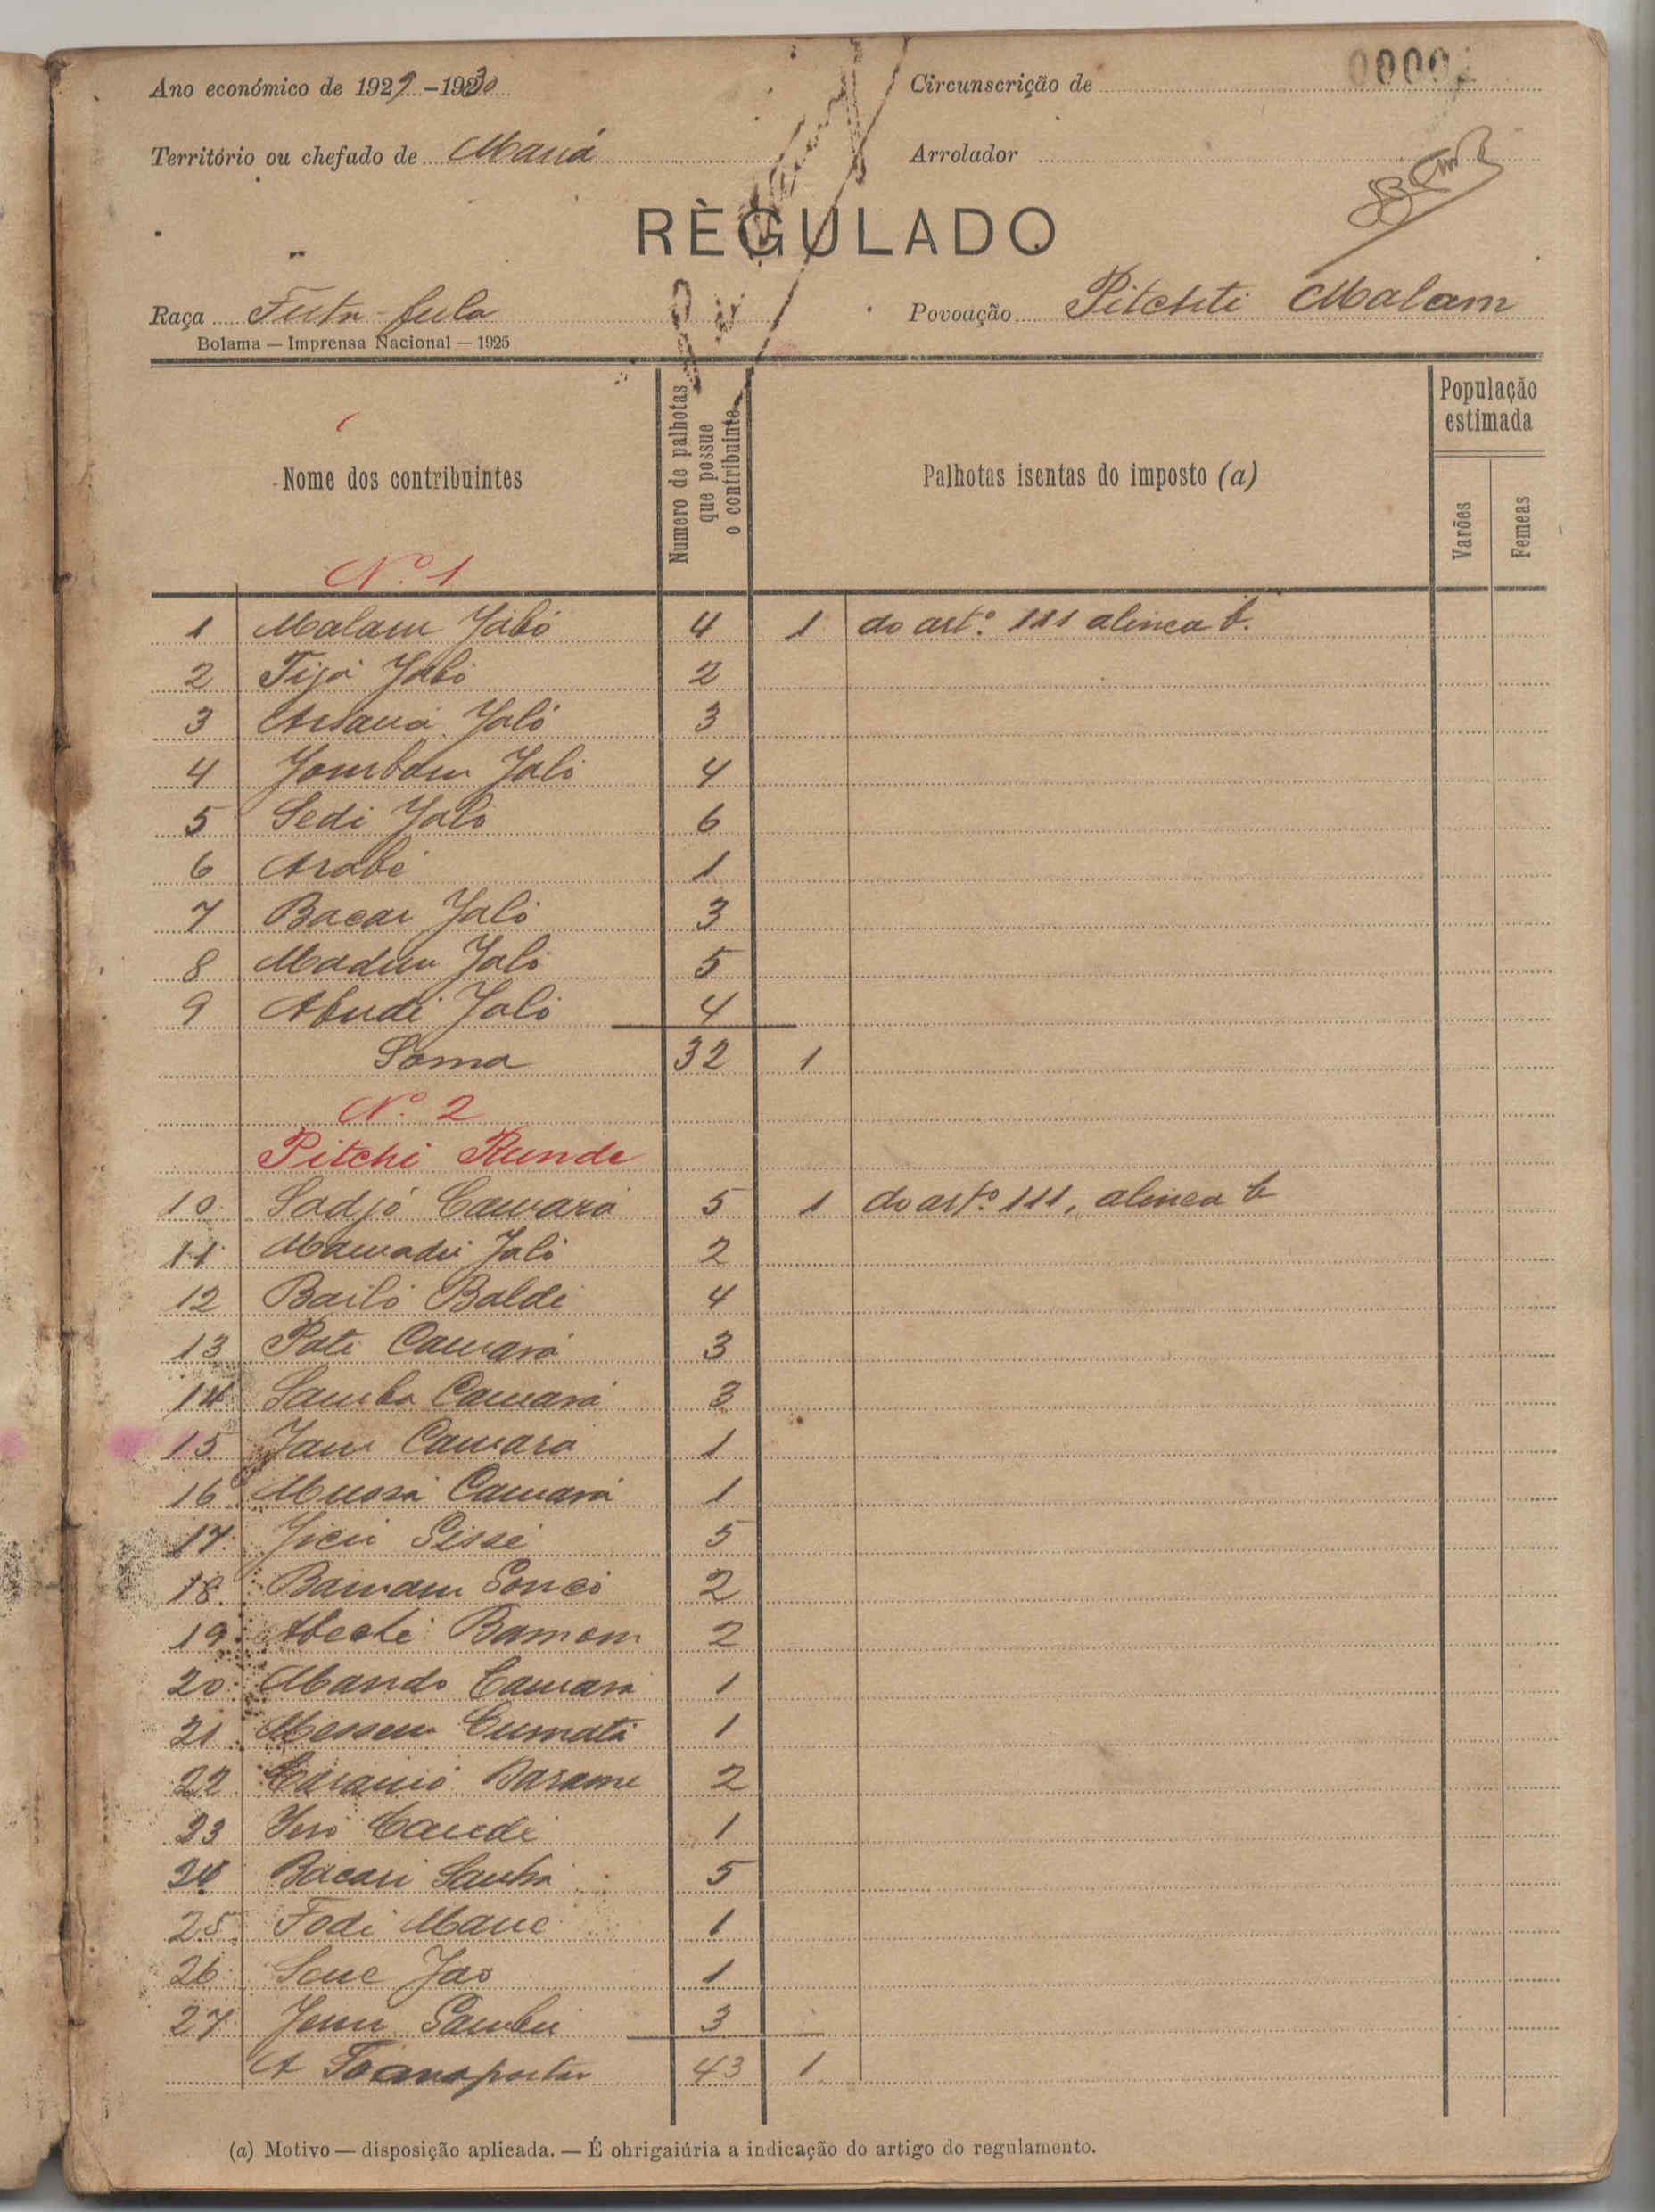 Ano económico de 1929-1930
Circunscrição de
0000
Território ou chefado de Maná
Arrolador
RÈGULADO
Raça Futa-fula
Povoação Pitchti Malam
Bolama — Imprensa Nacional — 1925
Nome dos contribuintes
Numero de palhotas que possue o contribuinte
Palhotas isentas do imposto (a)
População estimada
Varões
Femeas
Nº 1
1 Malam Jaló 4 1 do artº 111 alinea b.
2 Tijá Jaló 2
3 Jaló 3
4 Jombom Jaló 4
5 Sedi Jaló 6
6 Arabé 1
7 Bacar Jaló 3
8 Madiu Jaló 5
9 Abudé Jaló 4
Soma 32 1
Nº 2
Pitchi Runde
10 Sadjó Camará 5 1 do artº 111, alinea b
11 Mamadú Jaló 2
12 Bailó Baldé 4
13 Paté Camará 3
14 Samba Camará 3
15 Jam Camará 1
16 Mussá Camará 1
17 Sissé 5
18 Bamam Soncó 2
19 Bamam 2
20 Mando Camará 1
21 1
22 2
23 Iero Candé 1
24 Bacari Sanhá 5
25 Fodi Mané 1
26 Sene Jao 1
27 Sambú 3
A Transportar 43 1
(a) Motivo — disposição aplicada. — É obrigaiúria a indicação do artigo do regulamento.